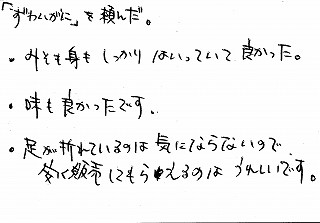 「ずわいがに」を頼んだ。
・みそも身もしっかりはいっていて良かった。
・味も良かったです。
・足が折れているのは気にならないので
安く販売してもらえるのはうれしいです。